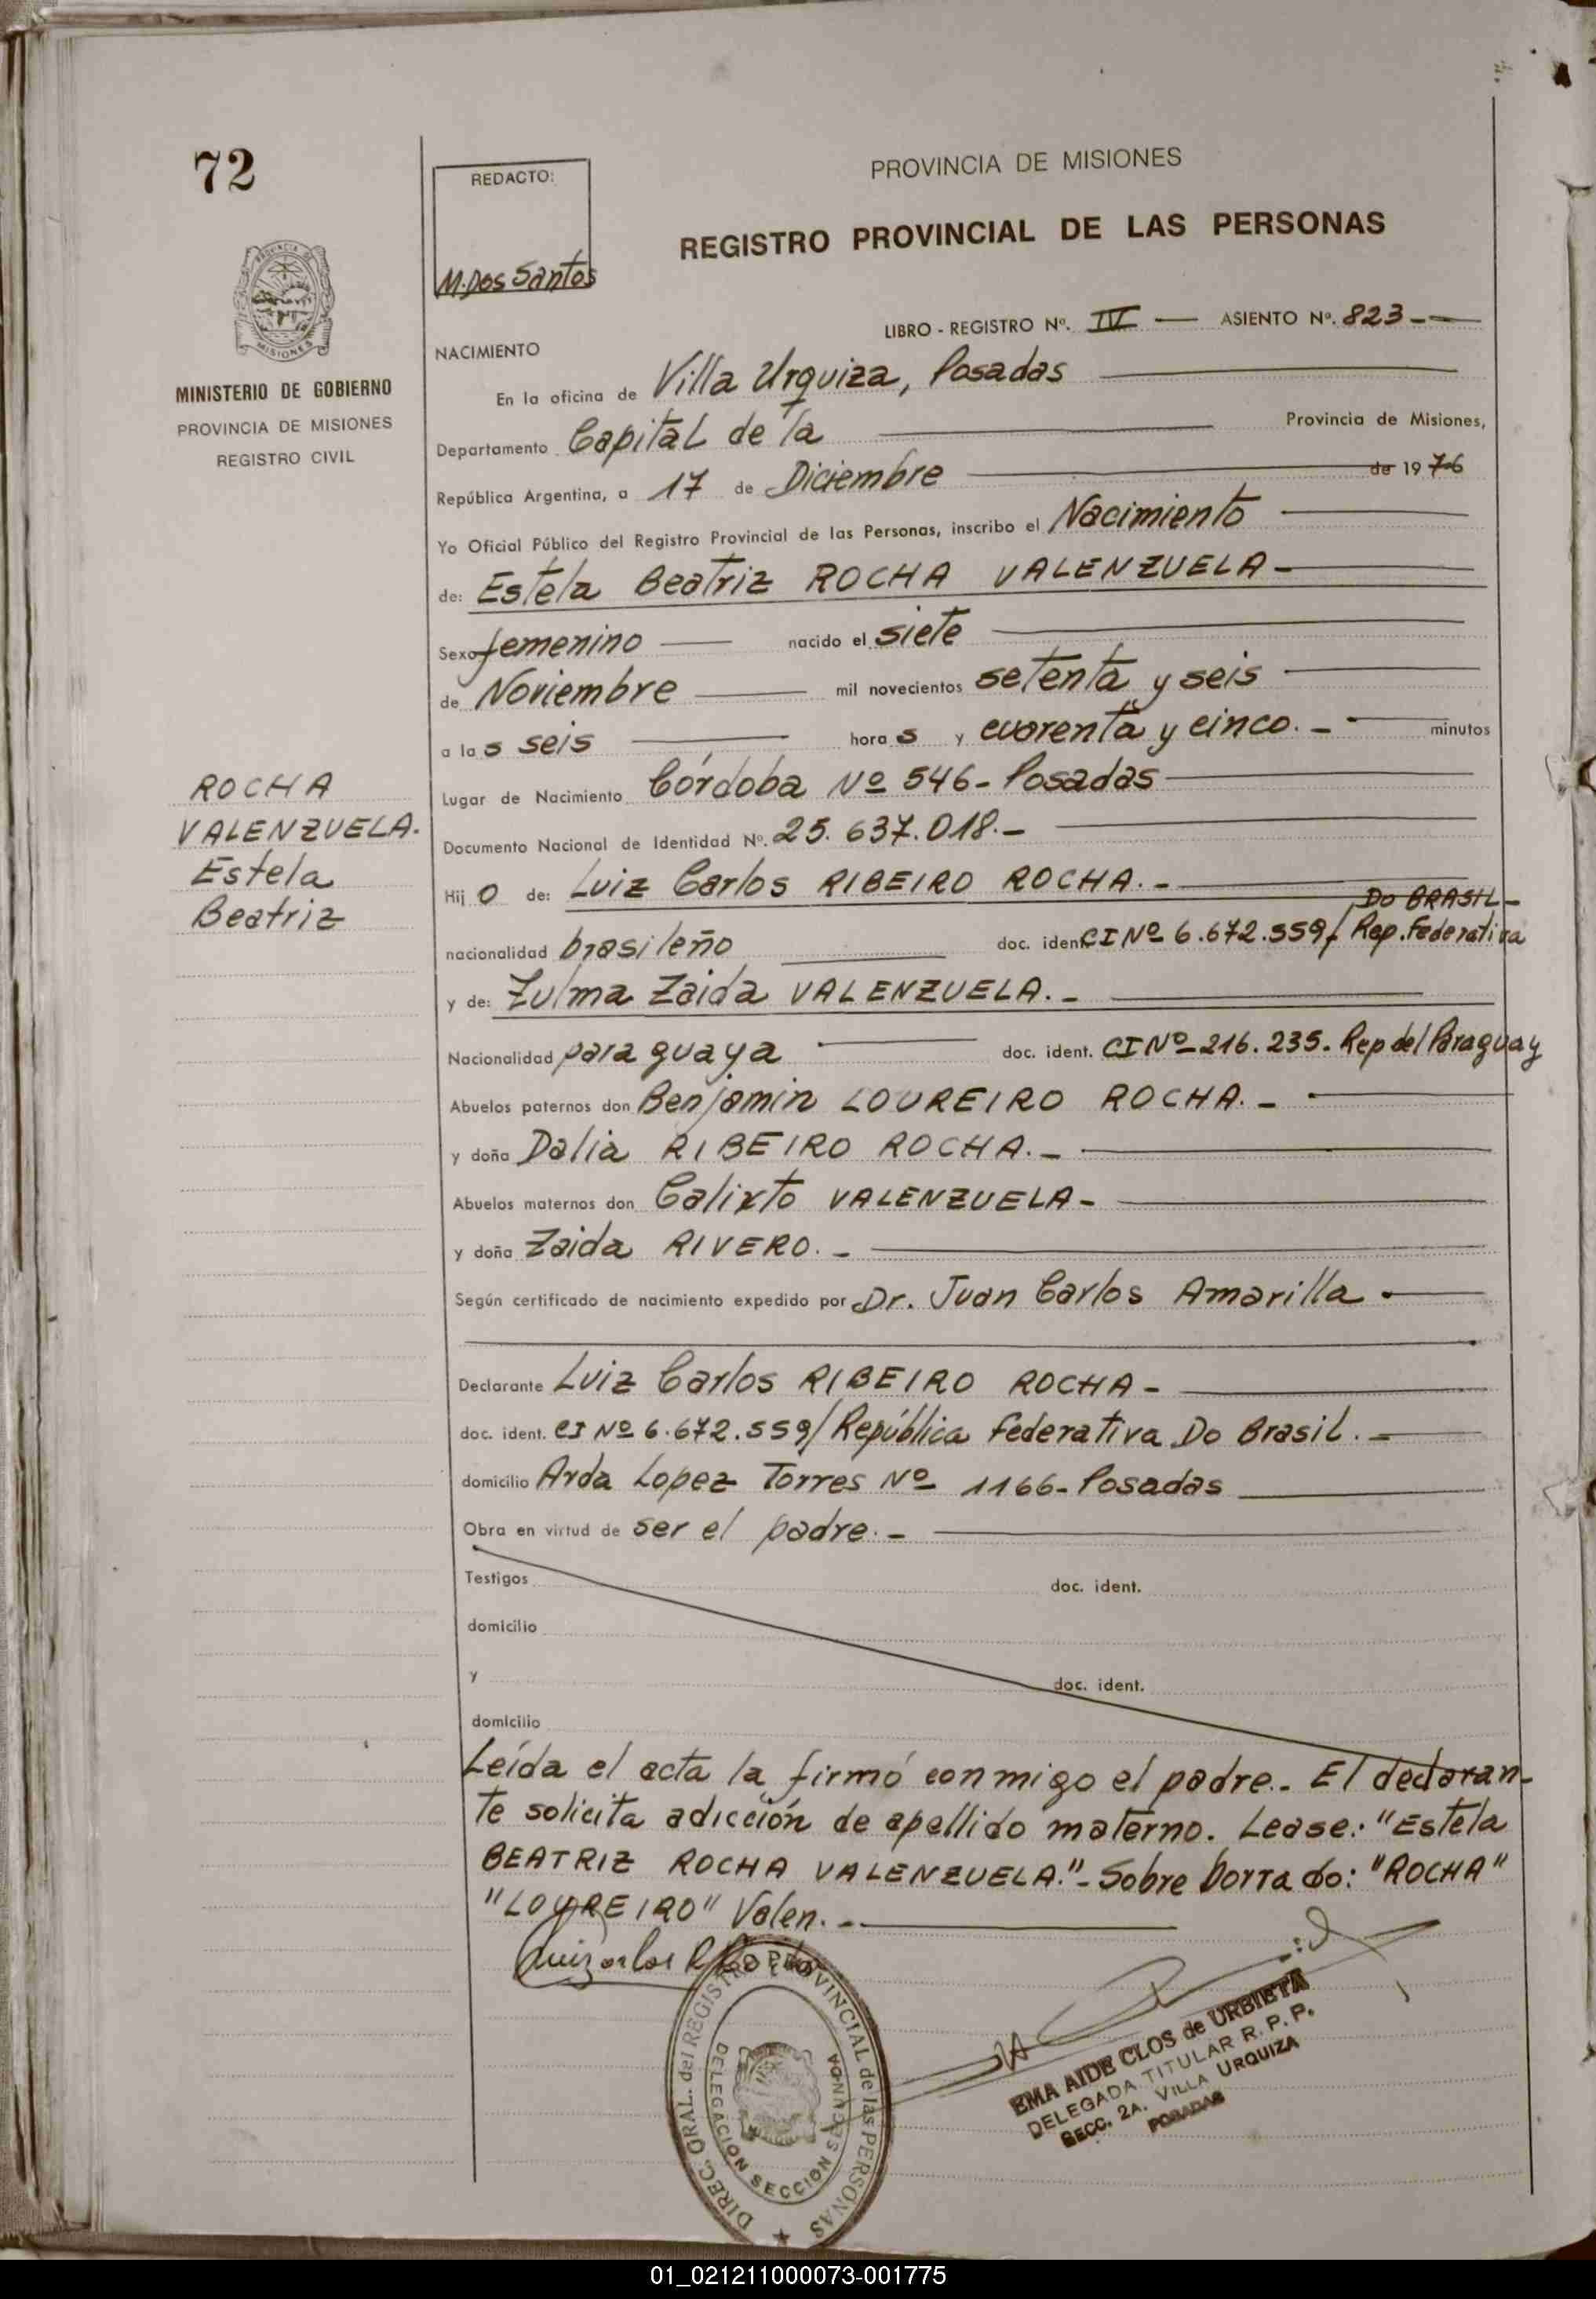 72
REDACTO:
M. Dos Santos
PROVINCIA DE MISIONES
REGISTRO PROVINCIAL DE LAS PERSONAS
PROVINCIA DE
MISIONES
MINISTERIO DE GOBIERNO
PROVINCIA DE MISIONES
REGISTRO CIVIL
LIBRO - REGISTRO Nº. IV — ASIENTO Nº. 823 -—
NACIMIENTO
En la oficina de Villa Urquiza, Posadas
Departamento Capital de la Provincia de Misiones,
República Argentina, a 17 de Diciembre de 1976
Yo Oficial Público del Registro Provincial de las Personas, inscribo el Nacimiento
de: Estela Beatriz ROCHA VALENZUELA -
Sexo femenino — nacido el siete
de Noviembre — mil novecientos setenta y seis
a las seis — horas y cuarenta y cinco. - minutos
Lugar de Nacimiento Córdoba Nº 546 - Posadas
Documento Nacional de Identidad Nº. 25.637.018. -
Hijo de: Luiz Carlos RIBEIRO ROCHA. -
DO BRASIL -
nacionalidad brasileño doc. ident. CI Nº 6.672.559/ Rep. Federativa
y de: Zulma Zaida VALENZUELA. -
Nacionalidad paraguaya doc. ident. CI Nº 216.235. Rep del Paraguay
Abuelos paternos don Benjamin LOUREIRO ROCHA. -
y doña Dalia RIBEIRO ROCHA. -
Abuelos maternos don Calixto VALENZUELA -
y doña Zaida RIVERO. -
Según certificado de nacimiento expedido por Dr. Juan Carlos Amarilla
Declarante Luiz Carlos RIBEIRO ROCHA -
doc. ident. CI Nº 6.672.559/ República Federativa Do Brasil. -
domicilio Avda Lopez Torres Nº 1166 - Posadas
Obra en virtud de ser el padre. -
Testigos doc. ident.
domicilio
y doc. ident.
domicilio
Leída el acta la firmó conmigo el padre. - El declaran-
te solicita adicción de apellido materno. Lease: "Estela
BEATRIZ ROCHA VALENZUELA." - Sobre borrado: "ROCHA"
"LOUREIRO" Valen. -
ROCHA
VALENZUELA.
Estela
Beatriz
Luiz Carlos R Rocha
DIREC. GRAL. del REGISTRO PROVINCIAL de las PERSONAS
DELEGACION SECCION SEGUNDA
EMA AIDE CLOS de URBIETA
DELEGADA TITULAR R. P. P.
SECC. 2A. VILLA URQUIZA
POSADAS
01_021211000073-001775